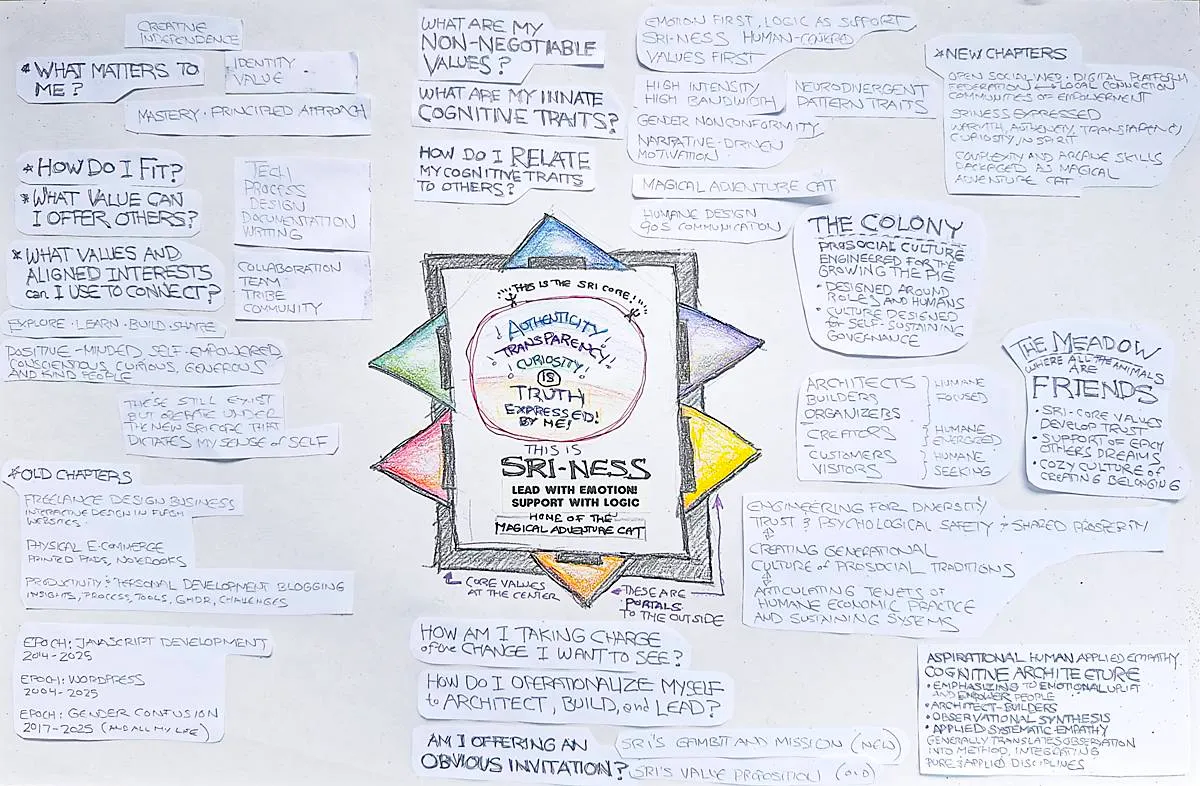 CREATIVE
INDEPENDENCE
* WHAT MATTERS TO
ME?
IDENTITY
VALUE
MASTERY · PRINCIPLED APPROACH
* HOW DO I FIT?
* WHAT VALUE CAN
I OFFER OTHERS?
TECH
PROCESS
DESIGN
DOCUMENTATION
WRITING
* WHAT VALUES AND
ALIGNED INTERESTS
can I USE TO CONNECT?
COLLABORATION
TEAM
TRIBE
COMMUNITY
EXPLORE · LEARN · BUILD · SHARE
POSITIVE-MINDED, SELF-EMPOWERED,
CONSCIENTIOUS, CURIOUS, GENEROUS
AND KIND PEOPLE
THESE STILL EXIST
BUT OPERATE UNDER
THE NEW SRI CORE THAT
DICTATES MY SENSE of SELF
* OLD CHAPTERS
FREELANCE DESIGN BUSINESS
INTERACTIVE DESIGN IN FLASH
WEBSITES
PHYSICAL E-COMMERCE
PRINTED PADS, NOTEBOOKS
PRODUCTIVITY & PERSONAL DEVELOPMENT BLOGGING
INSIGHTS, PROCESS, TOOLS, GHDR, CHALLENGES
EPOCH: JAVASCRIPT DEVELOPMENT
2014-2025
EPOCH: WORDPRESS
2004-2025
EPOCH: GENDER CONFUSION
2017-2025 (AND ALL MY LIFE)
WHAT ARE MY
NON-NEGOTIABLE
VALUES?
EMOTION FIRST, LOGIC AS SUPPORT
SRI-NESS HUMAN-
VALUES FIRST
WHAT ARE MY INNATE
COGNITIVE TRAITS?
HIGH INTENSITY
HIGH BANDWIDTH
NEURODIVERGENT
PATTERN TRAITS
GENDER NONCONFORMITY
NARRATIVE-DRIVEN
MOTIVATION
HOW DO I RELATE
MY COGNITIVE TRAITS
TO OTHERS?
MAGICAL ADVENTURE CAT
HUMANE DESIGN
90S COMMUNICATION
* NEW CHAPTERS
OPEN SOCIAL WEB · DIGITAL PLATFORM
FEDERATION LOCAL CONNECTION
COMMUNITIES OF EMPOWERMENT
SRINESS EXPRESSED
WARMTH, AUTHENTICITY, TRANSPARENCY,
CURIOSITY, IN SPIRIT
COMPLEXITY AND ARCANE SKILLS
PACKAGED AS MAGICAL
ADVENTURE CAT
THE COLONY
PROSOCIAL CULTURE
ENGINEERED FOR THE
GROWING THE PIE
• DESIGNED AROUND
ROLES AND HUMANS
• CULTURE DESIGNED
for SELF-SUSTAINING
GOVERNANCE
THE MEADOW
WHERE ALL THE ANIMALS
ARE
FRIENDS
• SRI-CORE VALUES
DEVELOP TRUST
• SUPPORT OF EACH
OTHERS DREAMS
• COZY CULTURE of
CREATING BELONGING
ARCHITECTS
BUILDERS
ORGANIZERS
HUMANE
FOCUSED
CREATORS
HUMANE
ENERGIZED
CUSTOMERS
VISITORS
HUMANE
SEEKING
THIS IS THE SRI CORE!
AUTHENTICITY
TRANSPARENCY!
CURIOSITY
IS
TRUTH
EXPRESSED!
BY ME!
THIS IS
SRI-NESS
LEAD WITH EMOTION!
SUPPORT WITH LOGIC
HOME OF THE
MAGICAL ADVENTURE CAT
CORE VALUES
AT THE CENTER
THESE ARE
PORTALS
TO THE OUTSIDE
ENGINEERING FOR DIVERSITY
TRUST & PSYCHOLOGICAL SAFETY & SHARED PROSPERITY
CREATING GENERATIONAL
CULTURE of PROSOCIAL TRADITIONS
ARTICULATING TENETS of
HUMANE ECONOMIC PRACTICE
AND SUSTAINING SYSTEMS
HOW AM I TAKING CHARGE
of the CHANGE I WANT TO SEE?
HOW DO I OPERATIONALIZE MYSELF
to ARCHITECT, BUILD, and LEAD?
AM I OFFERING AN
OBVIOUS INVITATION?
SRI'S GAMBIT AND MISSION (NEW)
SRI'S VALUE PROPOSITION (OLD)
ASPIRATIONAL HUMAN APPLIED EMPATHY
COGNITIVE ARCHITECTURE
• EMPHASIZING TO EMOTIONAL UPLIFT
AND EMPOWER PEOPLE
• ARCHITECT-BUILDERS
• OBSERVATIONAL SYNTHESIS
• APPLIED SYSTEMATIC EMPATHY
GENERALLY TRANSLATES OBSERVATION
INTO METHOD, INTEGRATING
PURE & APPLIED DISCIPLINES